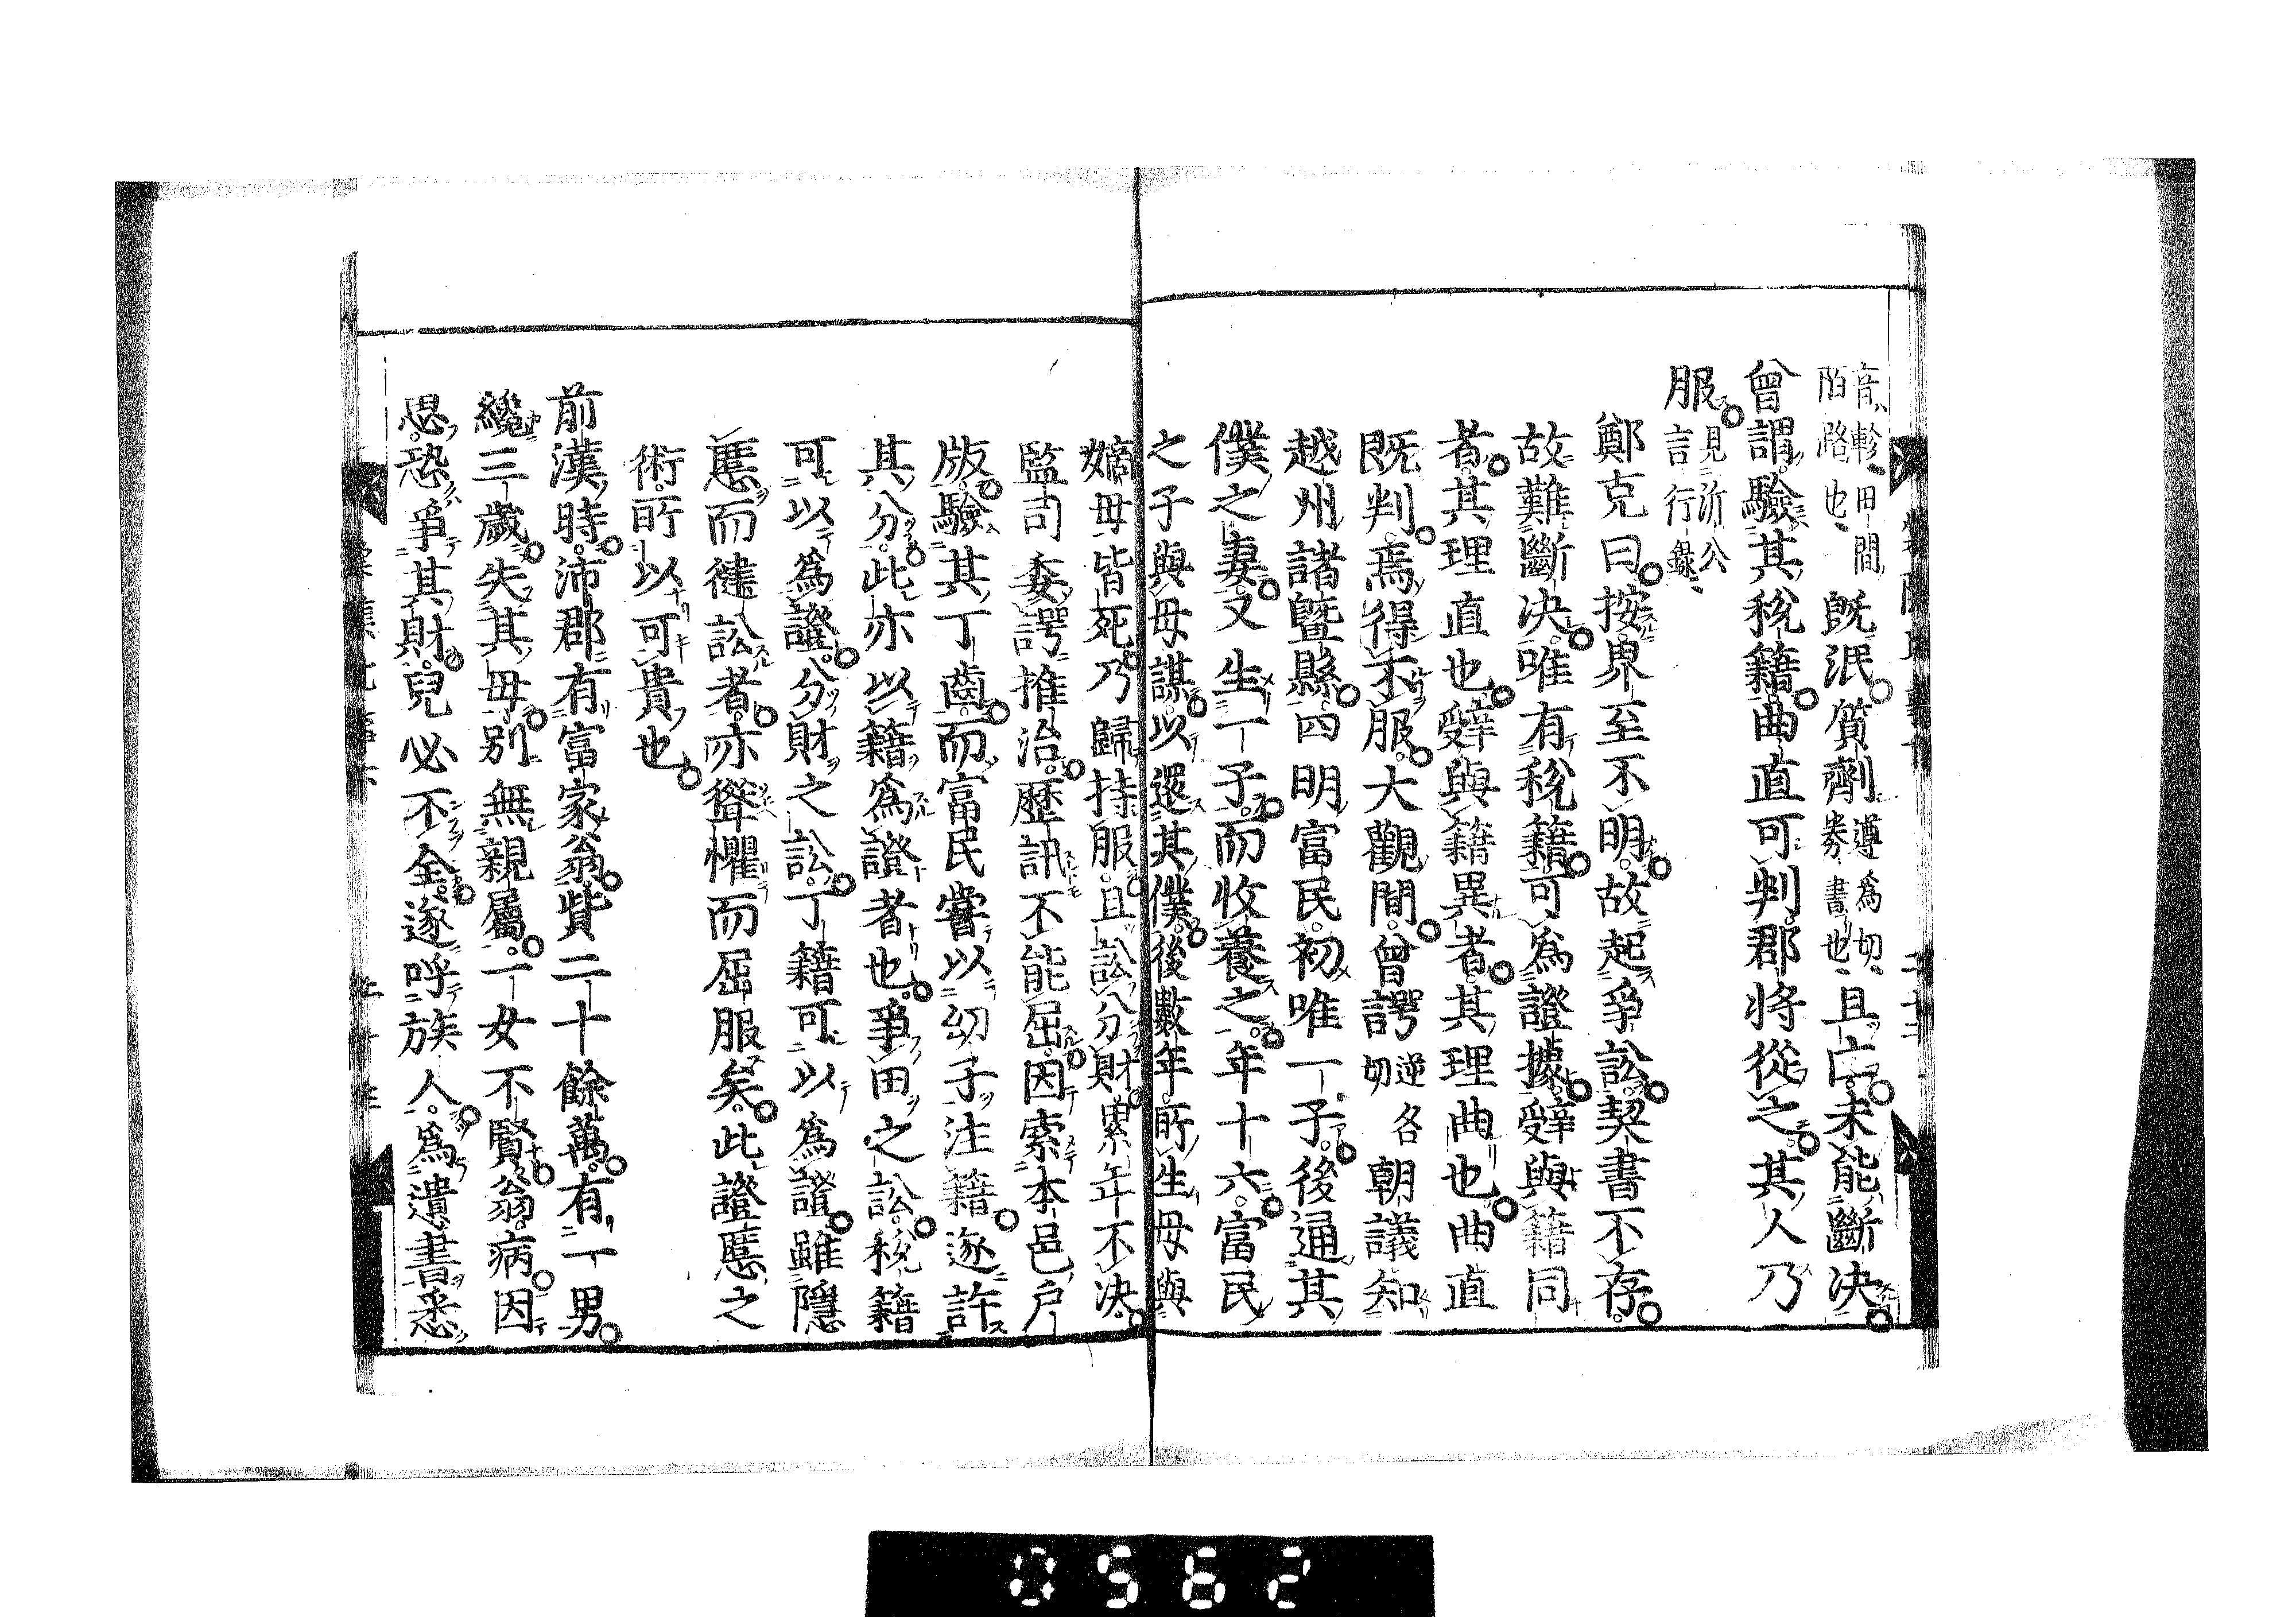 音軫田間
陌路也
既泯質劑
遵為切
券書也
且亡未能斷决
曾謂驗其稅籍曲直可判郡將從之其人乃
服
見沂公
言行錄
鄭克曰按畍至不明故起爭訟契書不存
故難斷决唯有稅籍可為證據辭與籍同
者其理直也辭與籍異者其理曲也曲直
既判焉得不服大觀間曾諤
逆各
切
朝議知
越州諸曁縣四明富民初唯一子後通其
僕之妻又生一子而收養之年十六富民
之子與母謀以還其僕後數年所生母與
嫡母皆死乃歸持服且訟分財累年不决
監司委諤推治歷訊不能屈因索本邑戶
版驗其丁齒而富民嘗以幼子注籍遂許
其分此亦以籍為證者也爭田之訟稅籍
可以為證分財之訟丁籍可以為證雖隱
慝而健訟者亦聳懼而屈服矣此證慝之
術所以可貴也
前漢時沛郡有富家翁貲二十餘萬有一男
纔三歲失其母別無親屬一女不賢翁病因
思恐爭其財兒必不全遂呼族人為遺書悉
0562